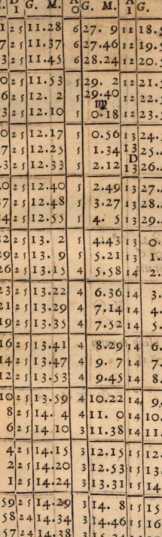 D I G. M. A O G. M. A I G.
25 11.28 6 27. 9 12 18.
25 11.37 6 27.46 12 19.
25 11.45 6 28.24 12 20.
25 11.53 5 29. 2 12 21.
25 12. 2 5 29.40 12 22.
25 12.10 5 0.18 12 23.
25 12.17 5 0.56 13 24.
25 12.25 5 1.34 13 25.
D
25 12.33 5 2.12 13 26.
25 12.40 5 2.49 13 27.
25 12.48 5 3.27 13 28.
25 12.55 5 4. 5 13 29.
25 13. 2 5 4.43 13 0.
25 13. 9 5 5.21 13 1.
25 13.15 4 5.58 14 2.
25 13.22 4 6.36 14 3.
25 13.29 4 7.14 14 4.
25 13.35 4 7.52 14 5.
25 13.41 4 8.29 14 6.
25 13.47 4 9. 7 14 7.
25 13.53 4 9.45 14
25 13.59 4 10.22 14 9.
25 14. 4 4 11. 0 14 10.
25 14.10 3 11.38 14 11.
25 14.15 3 12.15 15 12.
25 14.20 3 12.53 15 13.
25 14.24 3 13.31 15 14.
59 25 14.29 3 14. 8 15 15.
58 24 14.34 3 14.46 15 16.
57 24 14.38